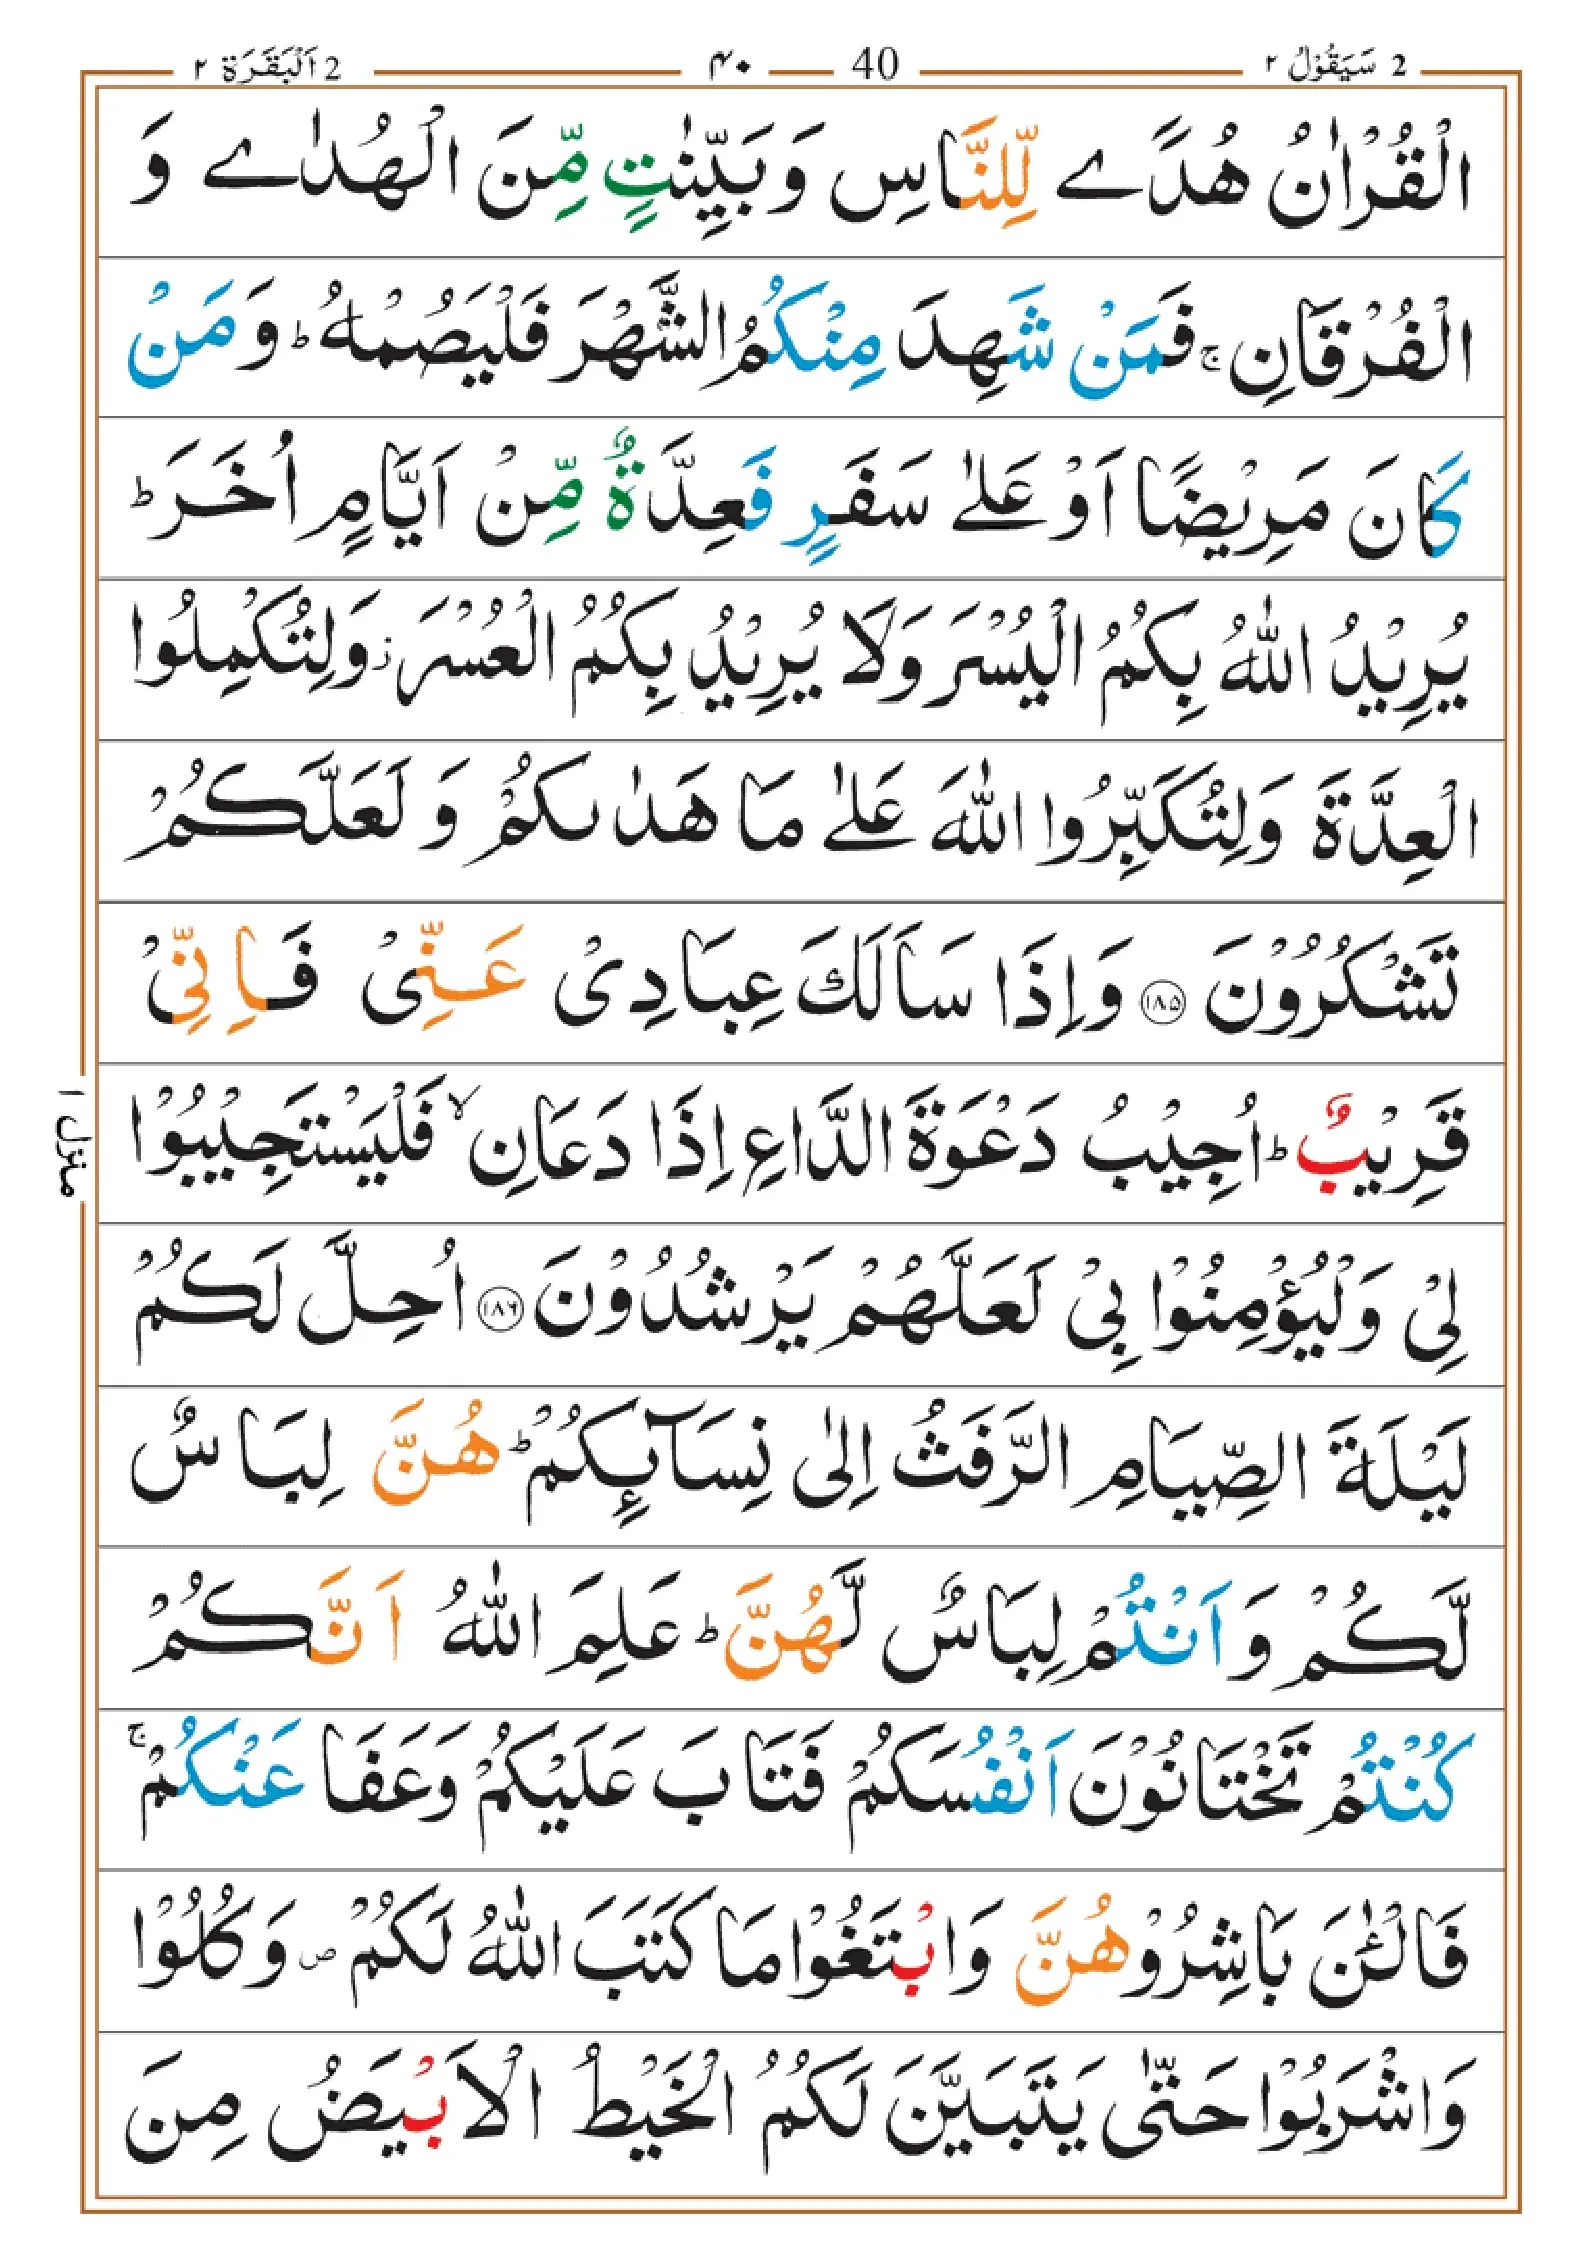 2 سَيَقُوْلُ ٢ 40 ۴۰ 2 اَلْبَقَرَة ٢
الْقُرْاٰنُ هُدًے لِّلنَّاسِ وَبَيِّنٰتٍ مِّنَ الْهُدٰے وَ
الْفُرْقَانِ ۚ فَمَنْ شَهِدَ مِنْكُمُ الشَّهْرَ فَلْيَصُمْهُ ؕ وَمَنْ
كَانَ مَرِيْضًا اَوْ عَلٰے سَفَرٍ فَعِدَّةٌ مِّنْ اَيَّامٍ اُخَرَ ؕ
يُرِيْدُ اللّٰهُ بِكُمُ الْيُسْرَ وَلَا يُرِيْدُ بِكُمُ الْعُسْرَ ؗ وَلِتُكْمِلُوا
الْعِدَّةَ وَلِتُكَبِّرُوا اللّٰهَ عَلٰے مَا هَدٰىكُمْ وَ لَعَلَّكُمْ
تَشْكُرُوْنَ ۝۱۸۵ وَاِذَا سَاَلَكَ عِبَادِىْ عَنِّىْ فَاِنِّىْ
قَرِيْبٌ ؕ اُجِيْبُ دَعْوَةَ الدَّاعِ اِذَا دَعَانِ ۙ فَلْيَسْتَجِيْبُوْا
لِىْ وَلْيُؤْمِنُوْا بِىْ لَعَلَّهُمْ يَرْشُدُوْنَ ۝۱۸۶ اُحِلَّ لَكُمْ
لَيْلَةَ الصِّيَامِ الرَّفَثُ اِلٰى نِسَآئِكُمْ ؕ هُنَّ لِبَاسٌ
لَّكُمْ وَ اَنْتُمْ لِبَاسٌ لَّهُنَّ ؕ عَلِمَ اللّٰهُ اَنَّكُمْ
كُنْتُمْ تَخْتَانُوْنَ اَنْفُسَكُمْ فَتَابَ عَلَيْكُمْ وَعَفَا عَنْكُمْ ۚ
فَالْـٰٔنَ بَاشِرُوْهُنَّ وَابْتَغُوْا مَا كَتَبَ اللّٰهُ لَكُمْ ۪ وَكُلُوْا
وَاشْرَبُوْا حَتّٰى يَتَبَيَّنَ لَكُمُ الْخَيْطُ الْاَبْيَضُ مِنَ
منزل ١